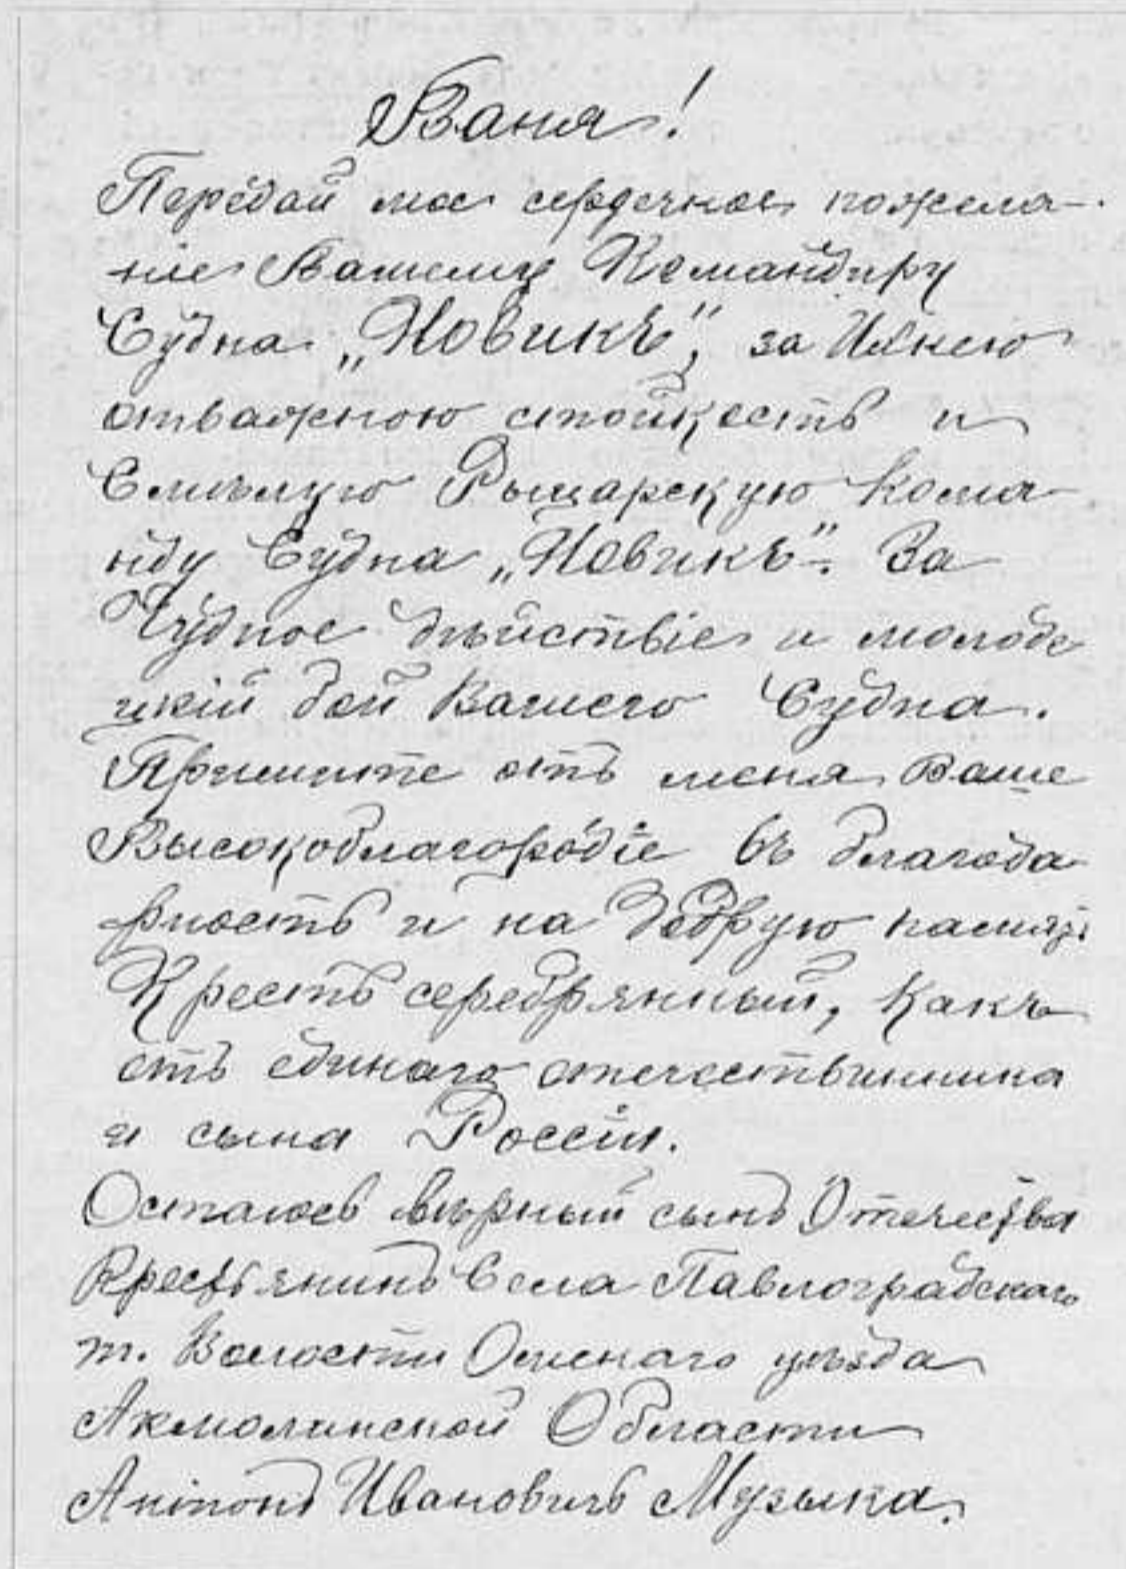 Ваня!
Передай мое сердечное пожела-
ніе Вашему Командиру
Судна „Новикъ“, за
отважною стойкость и
Смѣлую Рыцарскую кома
нду Судна „Новикъ“. За
Чудное дѣйствіе и молоде
цкій бой Вашего Судна.
Примите отъ меня Ваше
Высокоблагородіе въ благода
рность и на добрую память
Крестъ серебрянный, Какъ
отъ единаго отечествинника
и сына Россіи.
Остаюсь вѣрный сынъ Отечества
Крестьянинъ Села Павлоградскаго
т. Волости Омскаго уѣзда
Акмолинской Области
Антонъ Ивановичъ Музыка.